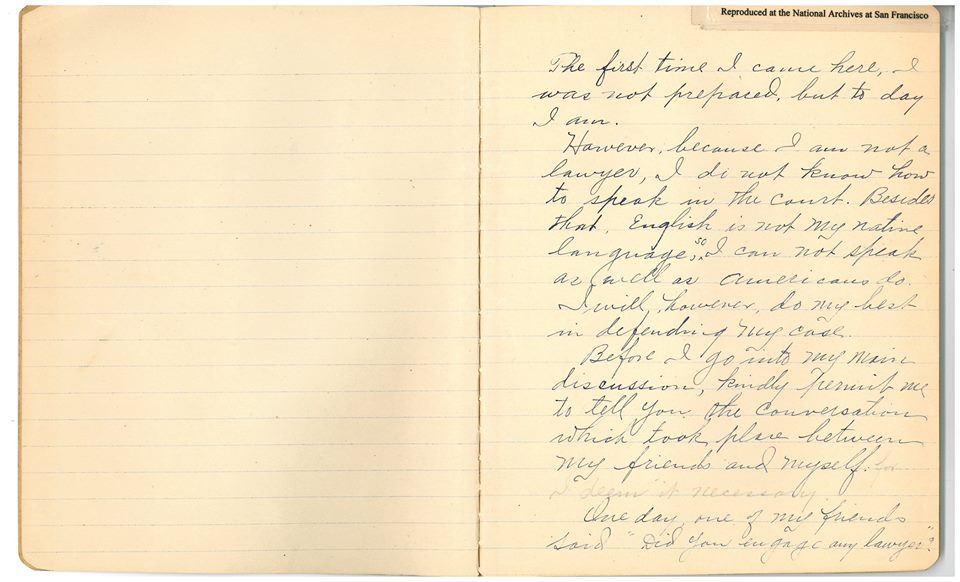 Reproduced at the National Archives at San Francisco
The first time I came here, I
was not prepared, but to day
I am.
However, because I am not a
lawyer, I do not know how
to speak in the court. Besides
that, English is not my native
language, so I can not speak
as well as Americans do.
I will, however, do my best
in defending my case.
Before I go into my main
discussion, kindly permit me
to tell you the conversation
which took place between
my friends and myself. for
I deem it necessary
One day, one of my friends
said "Did you engage any lawyer?"